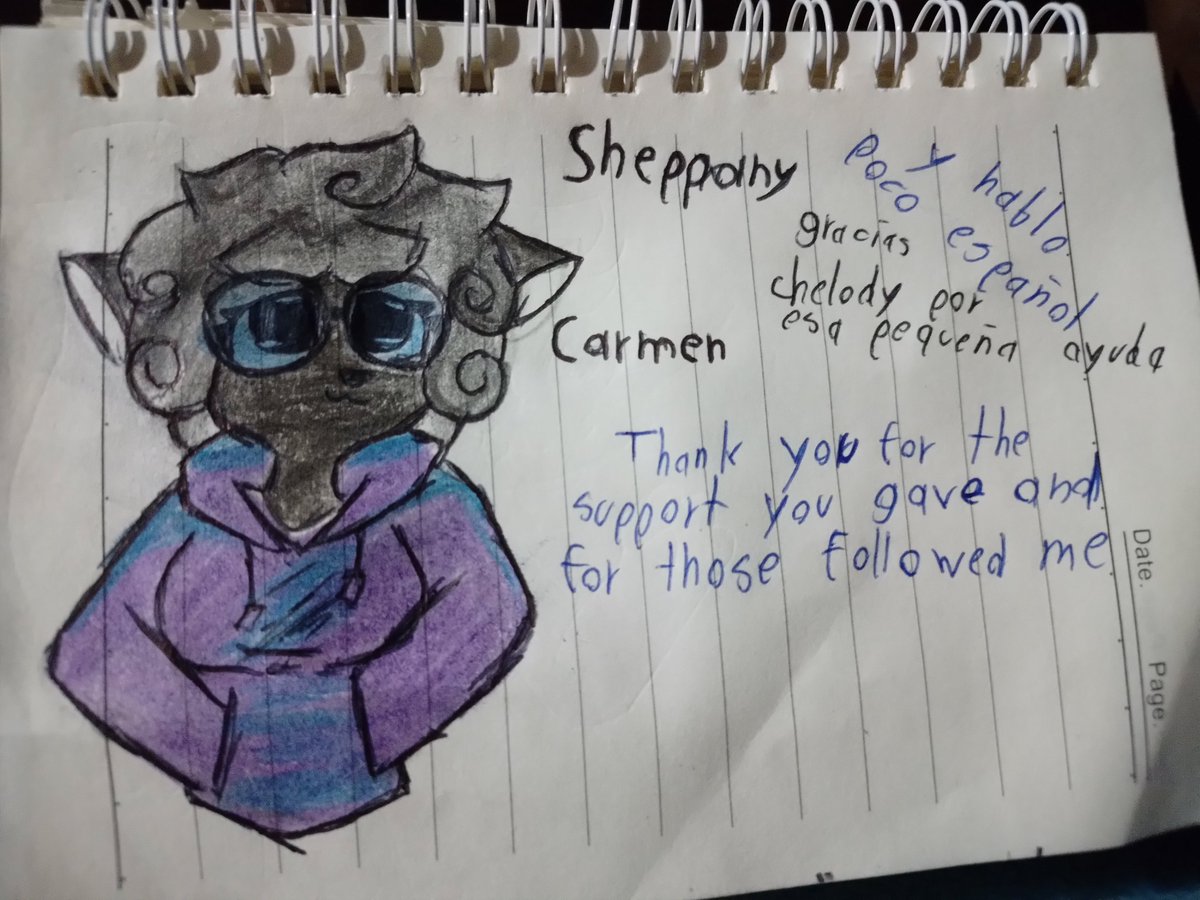 Sheppany
Carmen
gracias
chelody por
esa pequeña ayuda
y hablo
poco español
Thank you for the
support you gave and
for those followed me
Date.
Page.